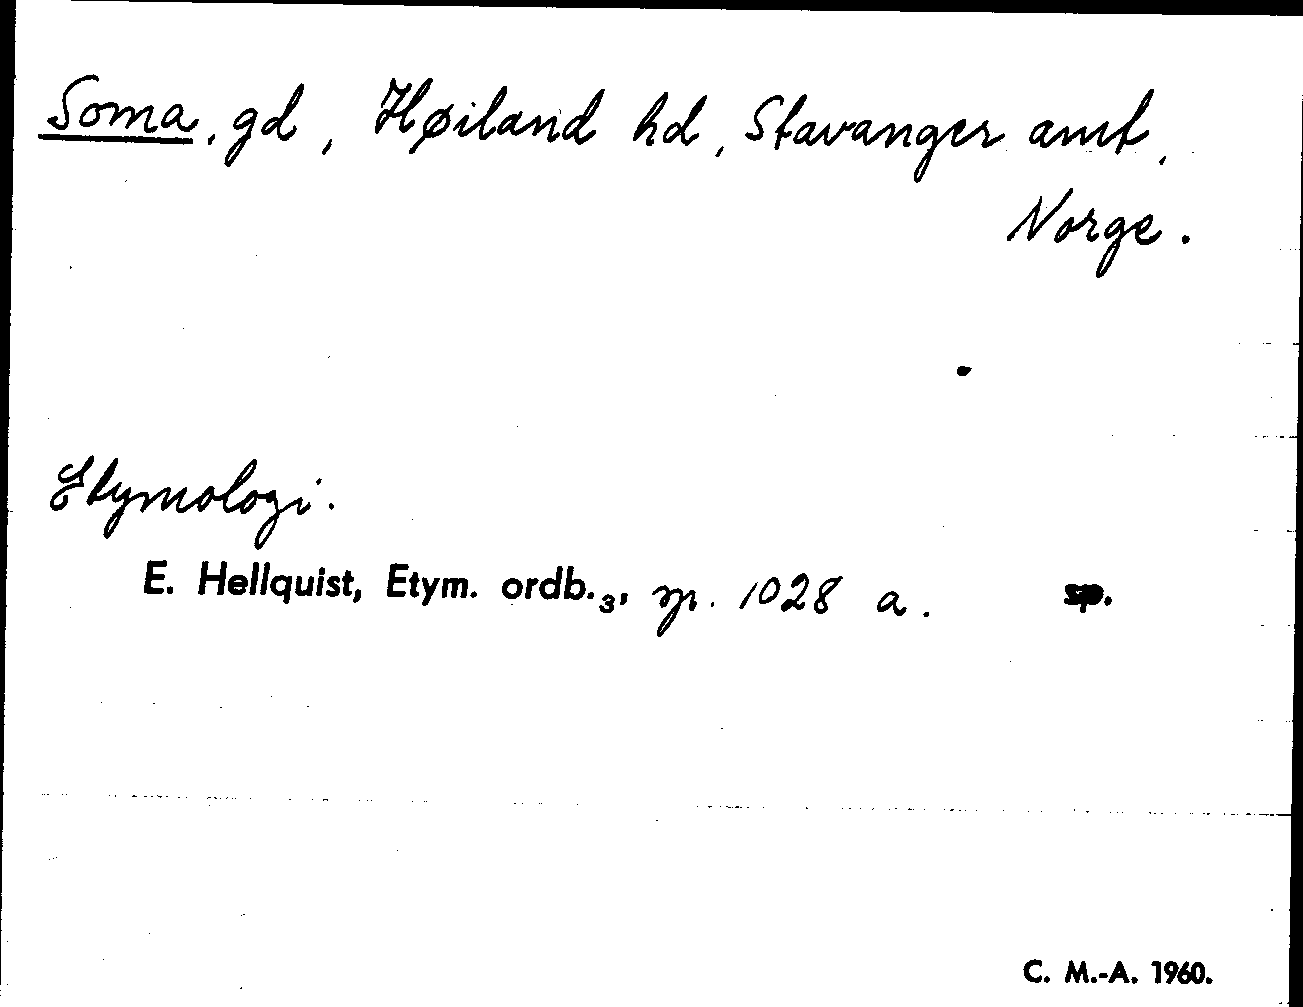 Soma, gd, Høiland hd, Stavanger amt,
Norge.
Etymologi.
E. Hellquist, Etym. ordb.₃, sp. 1028 a. sp.
C. M.-A. 1960.